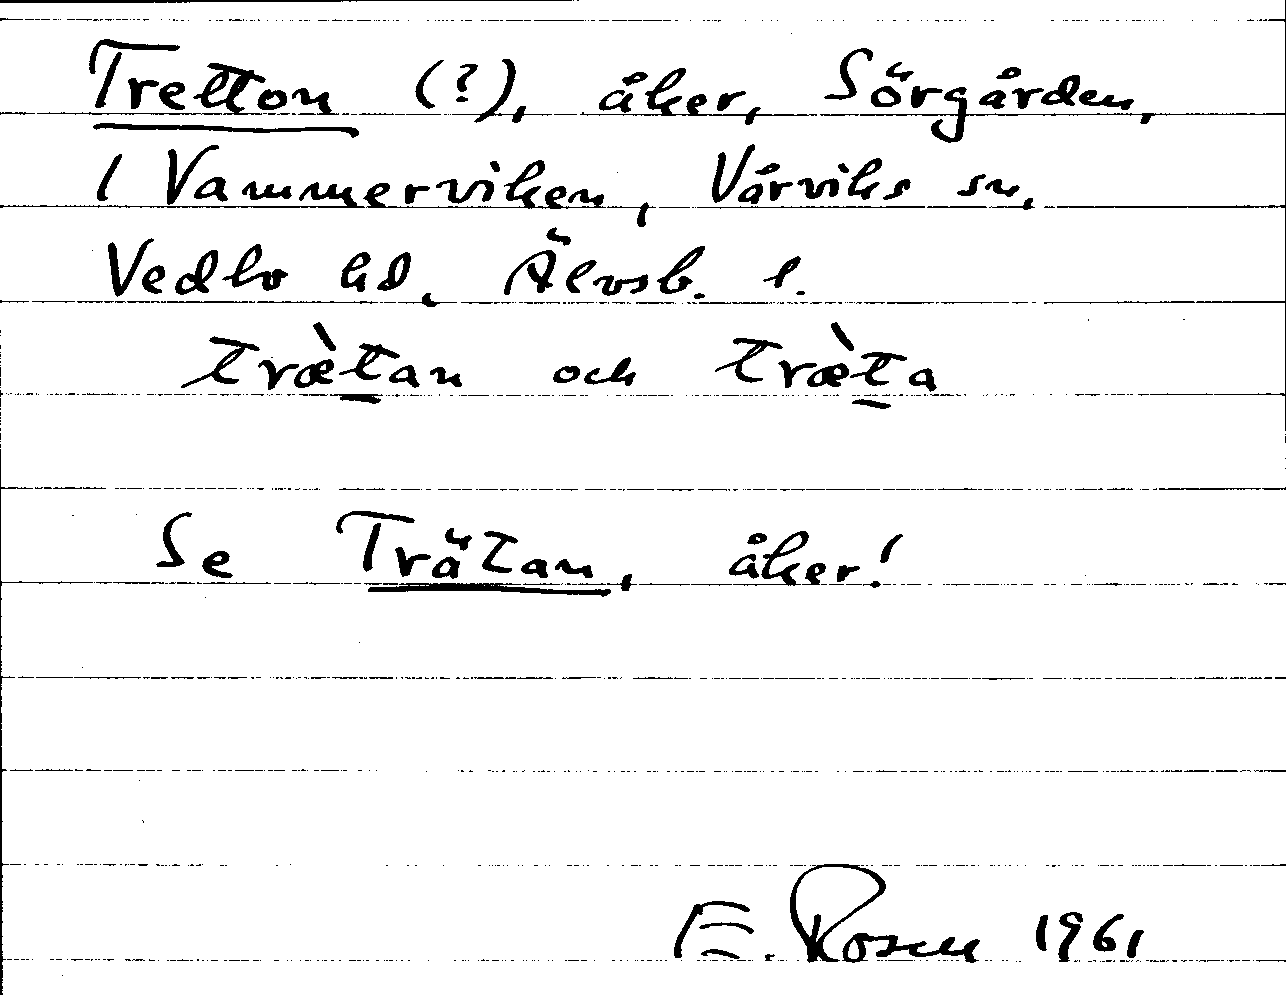 Tretton (?), åker, Sörgården,
1 Vammerviken, Vårviks sn,
Vedbo hd, Älvsb. l.
træ̀t̲an och træ̀t̲a
Se Trätan, åker!
E. Rosen 1961